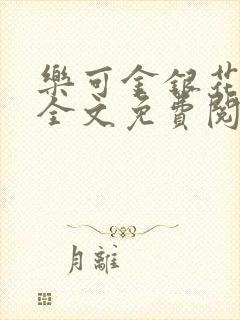 樂可金銀花
全文免費閱
月離